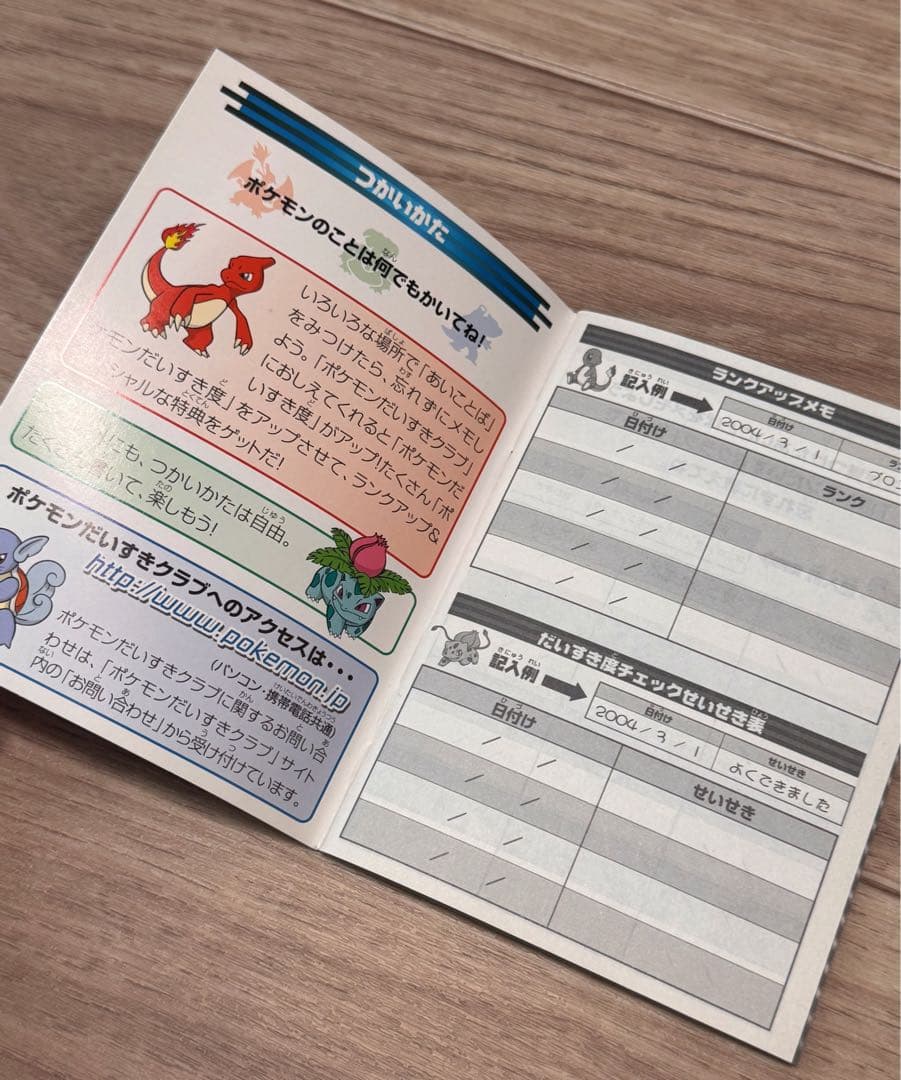 つかいかた
ポケモンのことは何でもかいてね!
いろいろな場所で「あいことば」
をみつけたら、忘れずにメモし
よう。「ポケモンだいすきクラブ」
におしえてくれると「ポケモンだ
いすき度」がアップ!たくさん「ポ
モンだいすき度」をアップさせて、ランクアップ&
シャルな特典をゲットだ!
にも、つかいかたは自由。
たく いて、楽しもう!
ポケモンだいすきクラブへのアクセスは・・
http://www.pokemon.jp
(パソコン・携帯電話共通)
ポケモンだいすきクラブに関するお問い合
わせは、「ポケモンだいすきクラブ」サイト
内の「お問い合わせ」から受け付けています。
ランクアップメモ
記入例
日付け
2004/3/1
プロ
日付け
ランク
/ /
/ /
/ /
/ /
だいすき度チェックせいせき表
記入例
日付け
せいせき
2004/3/1
よくできました
日付け
せいせき
/ /
/ /
/ /
/ /